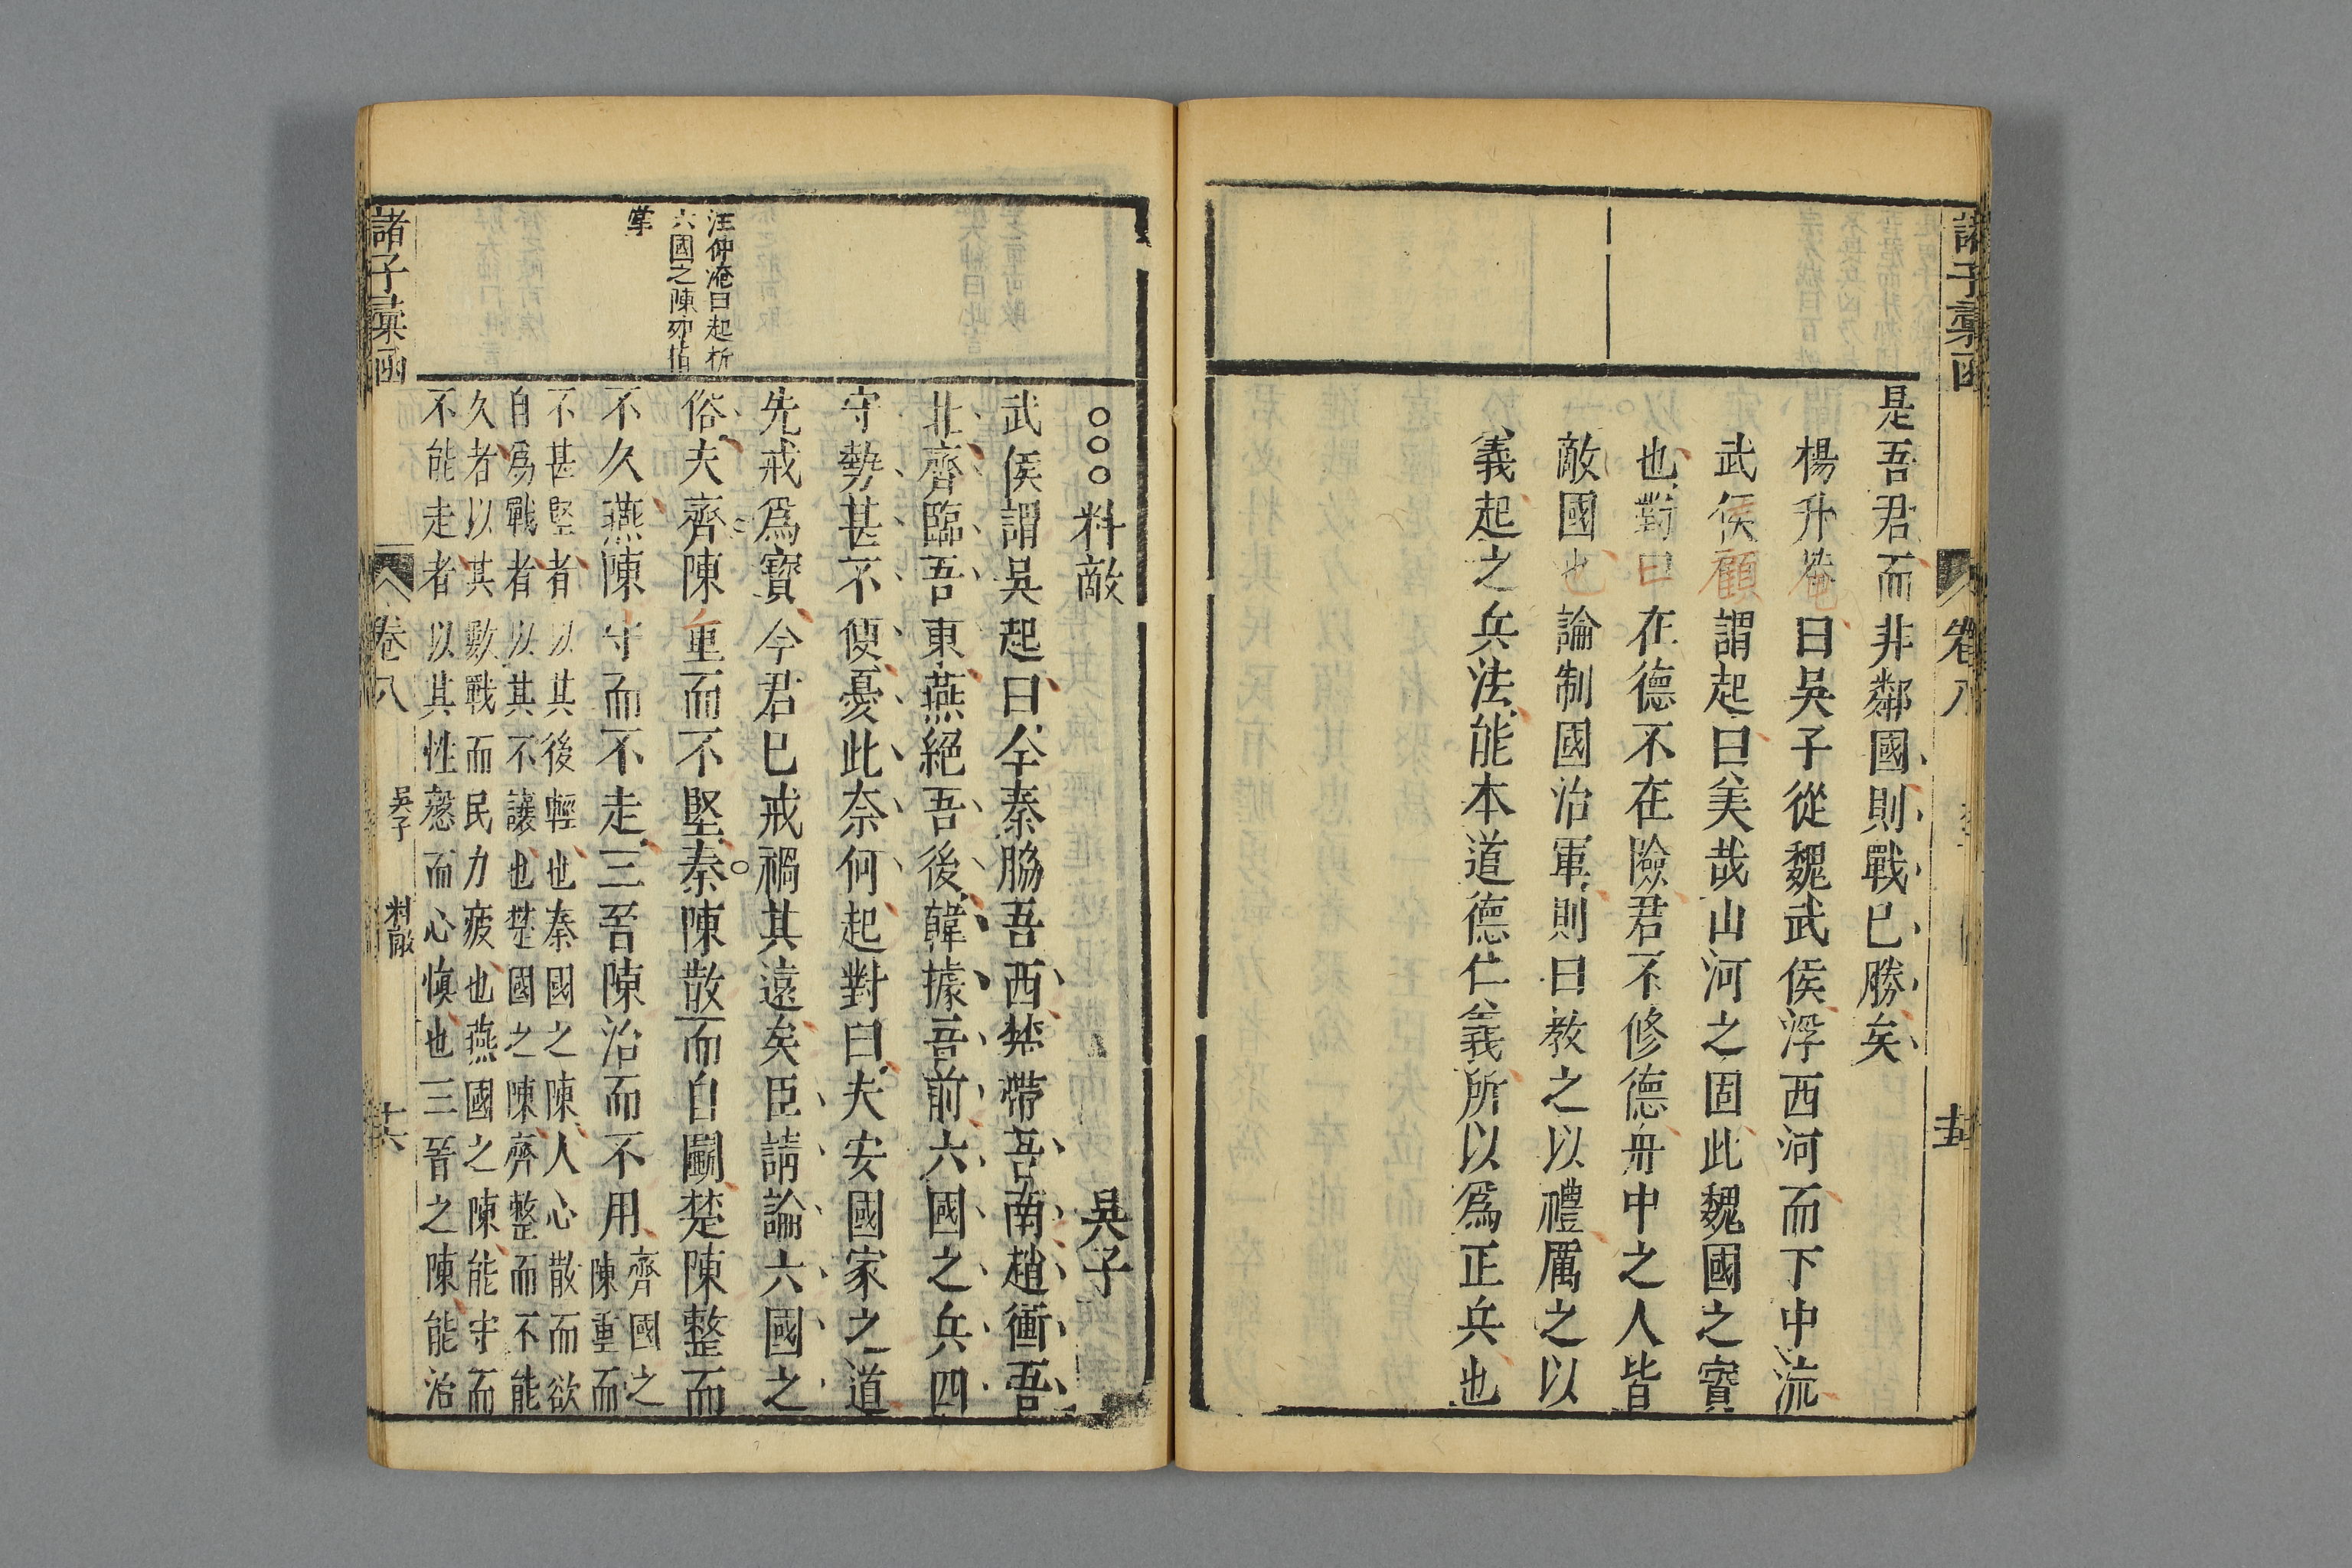 諸子彙函
卷八
是吾君而非鄰國則戰已勝矣
楊升菴曰吳子從魏武侯浮西河而下中流
武侯顧謂起曰美哉山河之固此魏國之寶
也對曰在德不在險君不修德舟中之人皆
敵國也論制國治軍則曰教之以禮厲之以
義起之兵法能本道德仁義所以爲正兵也
○○○料敵
吳子
武侯謂吳起曰今秦脇吾西楚帶吾南趙衝吾
北齊臨吾東燕絕吾後韓據吾前六國之兵四
守勢甚不便憂此奈何起對曰夫安國家之道
先戒爲寶今君已戒禍其遠矣臣請論六國之
俗夫齊陳重而不堅秦陳散而自鬬楚陳整而
不久燕陳守而不走三晉陳治而不用
齊國之
陳重而
不甚堅者以其後輕也秦國之陳人心散而欲
自爲戰者以其不讓也楚國之陳齊整而不能
久者以其數戰而民力疲也燕國之陳能守而
不能走者以其性慤而心慎也三晉之陳能治
汪仲淹曰起析
六國之陳如指
掌
諸子彙函
卷八
吳子
料敵